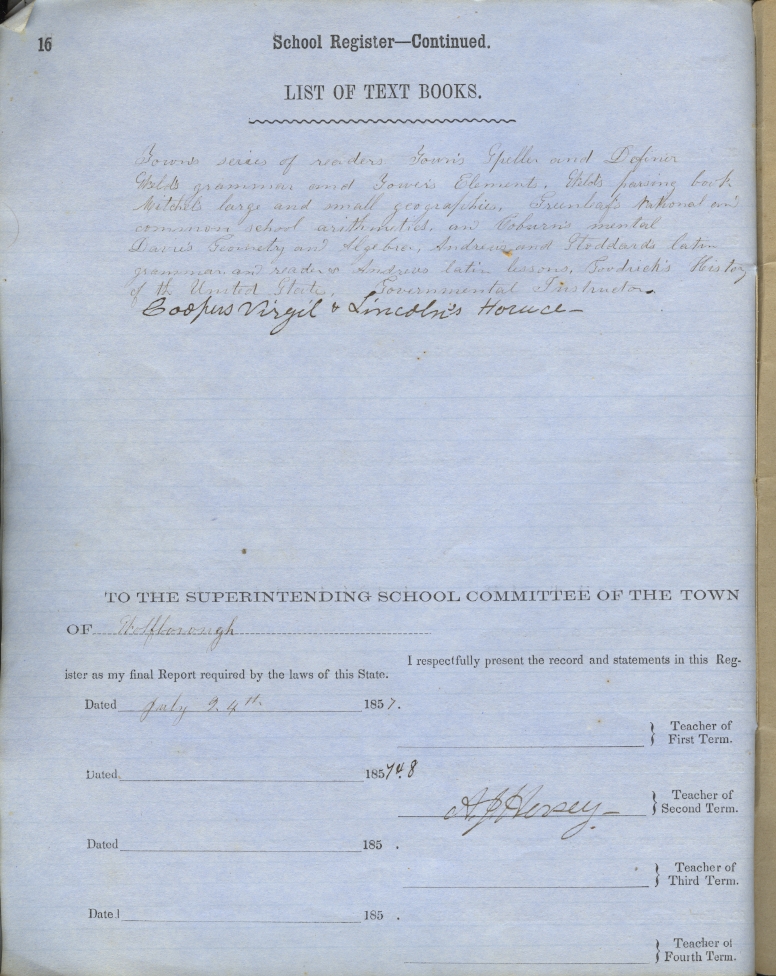 16
School Register—Continued.
LIST OF TEXT BOOKS.
Town's series of readers Town's Speller and Definer
Weld's grammar and Tower's Elements, Weld's parsing book
Mitchel large and small geographies, Greenleaf's National and
common school arithmetics, an Coburn's mental
Davie's Geometry and Algebra, Andrews and Stoddard's latin
grammar and readers Andrews latin lessons, Goodrick's History
of the United States, Governmental Instructor
Coopers Virgil & Lincoln's Horace—
TO THE SUPERINTENDING SCHOOL COMMITTEE OF THE TOWN
OF Wolfborough
I respectfully present the record and statements in this Reg-
ister as my final Report required by the laws of this State.
Dated July 24th 1857.
Teacher of
First Term.
Dated 1857 & 8
A J Hersey
Teacher of
Second Term.
Dated 185 .
Teacher of
Third Term.
Dated 185 .
Teacher of
Fourth Term.